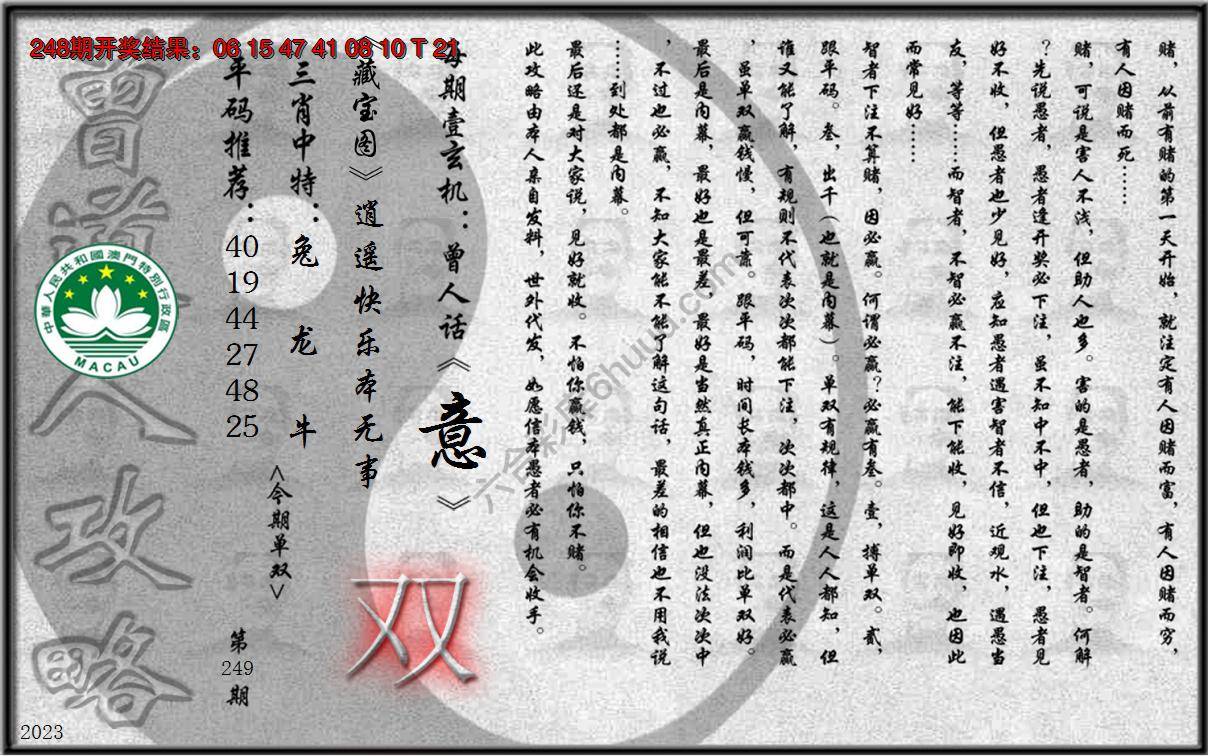 248期开奖结果：06 15 47 41 08 10 T 21
赌，从前有赌的第一天开始，就注定有人因赌而富，有人因赌而穷，
有人因赌而死……
赌，可说是害人不浅，但助人也多。害的是愚者，助的是智者。何解
？先说愚者，愚者逢开奖必下注，虽不知中不中，但也下注，愚者见
好不收，但愚者也少见好，应知愚者遇害智者不信，近观水，遇愚当
友，等等……而智者，不智必赢不注，能下能收，见好即收，也因此
而常见好……
智者下注不算赌，因必赢。何谓必赢？必赢有叁。壹，搏单双。贰，
跟平码。叁，出千（也就是内幕）。单双有规律，这是人人都知，但
谁又能了解，有规则不代表次次都能下注，次次都中。而是代表必赢
，虽单双赢钱慢，但可靠。跟平码，时间长本钱多，利润比单双好。
最后是内幕，最好也是最差，最好是当然真正内幕，但也没法次次中
，不过也必赢，不知大家能不能了解这句话，最差的相信也不用我说
……到处都是内幕。
最后还是对大家说，见好就收。不怕你赢钱，只怕你不赌。
此攻略由本人亲自发料，世外代发，如愿信本愚者必有机会收手。
每期壹玄机：曾人话《意》
《藏宝图》逍遥快乐本无事
双
三肖中特：兔 龙 牛
<今期单双>
平码推荐：
40
19
44
27
48
25
第
249
期
曾道人攻略
中華人民共和國澳門特別行政區
MACAU
2023